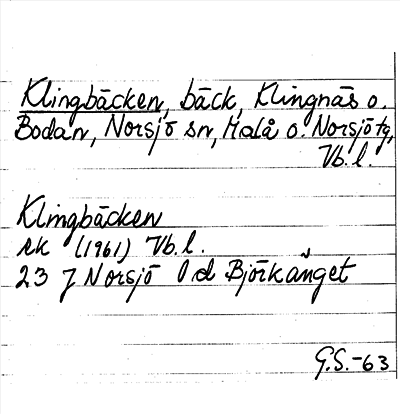 Klingbäcken, bäck, Klingnäs o.
Bodan, Norsjö sn, Malå o. Norsjö tg,
Vb. l.
Klingbäcken
ek (1961) Vb. l.
23 J Norsjö 0 d Björkänget
G.S.-63